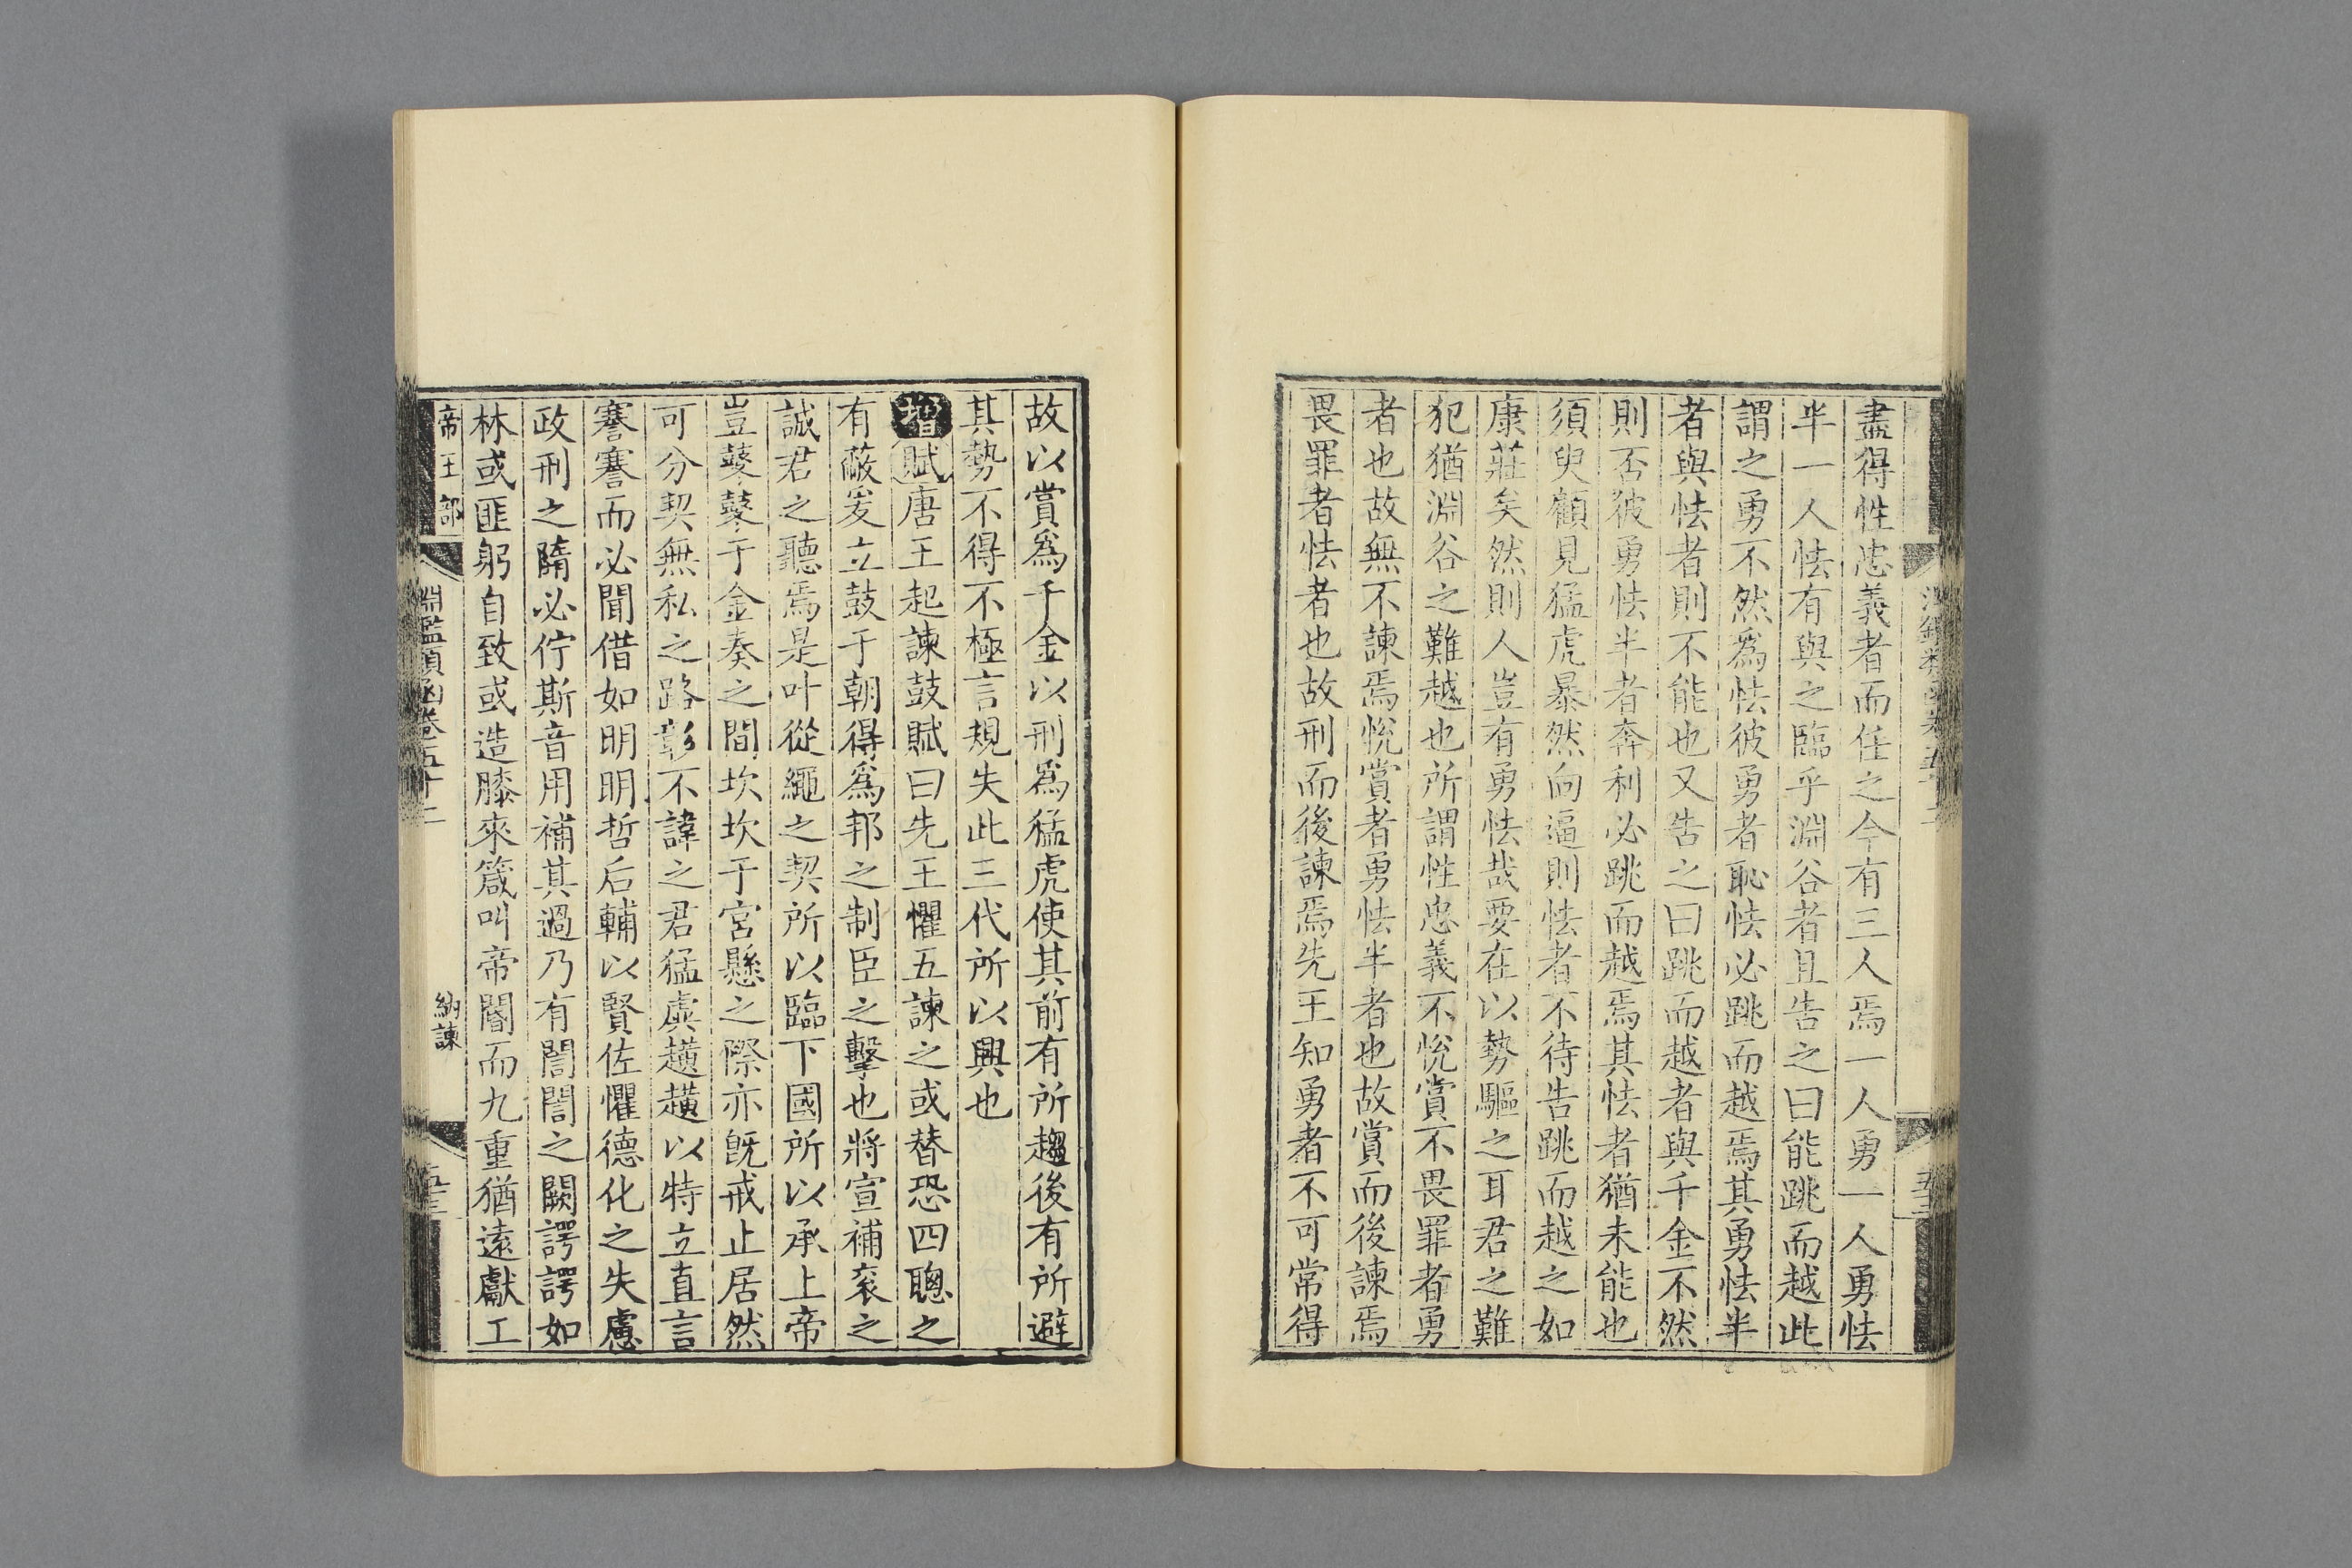 盡得性忠義者而任之今有三人焉一人勇一人勇怯
半一人怯有與之臨乎淵谷者且告之曰能跳而越此
謂之勇不然爲怯彼勇者恥怯必跳而越焉其勇怯半
者與怯者則不能也又告之曰跳而越者與千金不然
則否彼勇怯半者奔利必跳而越焉其怯者猶未能也
須臾顧見猛虎暴然向逼則怯者不待告跳而越之如
康莊矣然則人豈有勇怯哉要在以勢驅之耳君之難
犯猶淵谷之難越也所謂性忠義不悅賞不畏罪者勇
者也故無不諫焉悅賞者勇怯半者也故賞而後諫焉
畏罪者怯者也故刑而後諫焉先王知勇者不可常得
故以賞爲千金以刑爲猛虎使其前有所趨後有所避
其勢不得不極言規失此三代所以興也
增賦唐王起諫鼓賦曰先王懼五諫之或替恐四聰之
有蔽爰立鼓于朝得爲邦之制臣之擊也將宣補衮之
誠君之聽焉是叶從繩之契所以臨下國所以承上帝
豈鼕鼕于金奏之間坎坎于宮懸之際亦旣戒止居然
可分契無私之路彰不諱之君猛虡趪趪以特立直言
謇謇而必聞借如明明哲后輔以賢佐懼德化之失慮
政刑之隋必佇斯音用補其過乃有誾誾之闕諤諤如
林或匪躬自致或造膝來箴叫帝閽而九重猶遠獻工
帝王部
淵鑑類函卷五十二
納諫